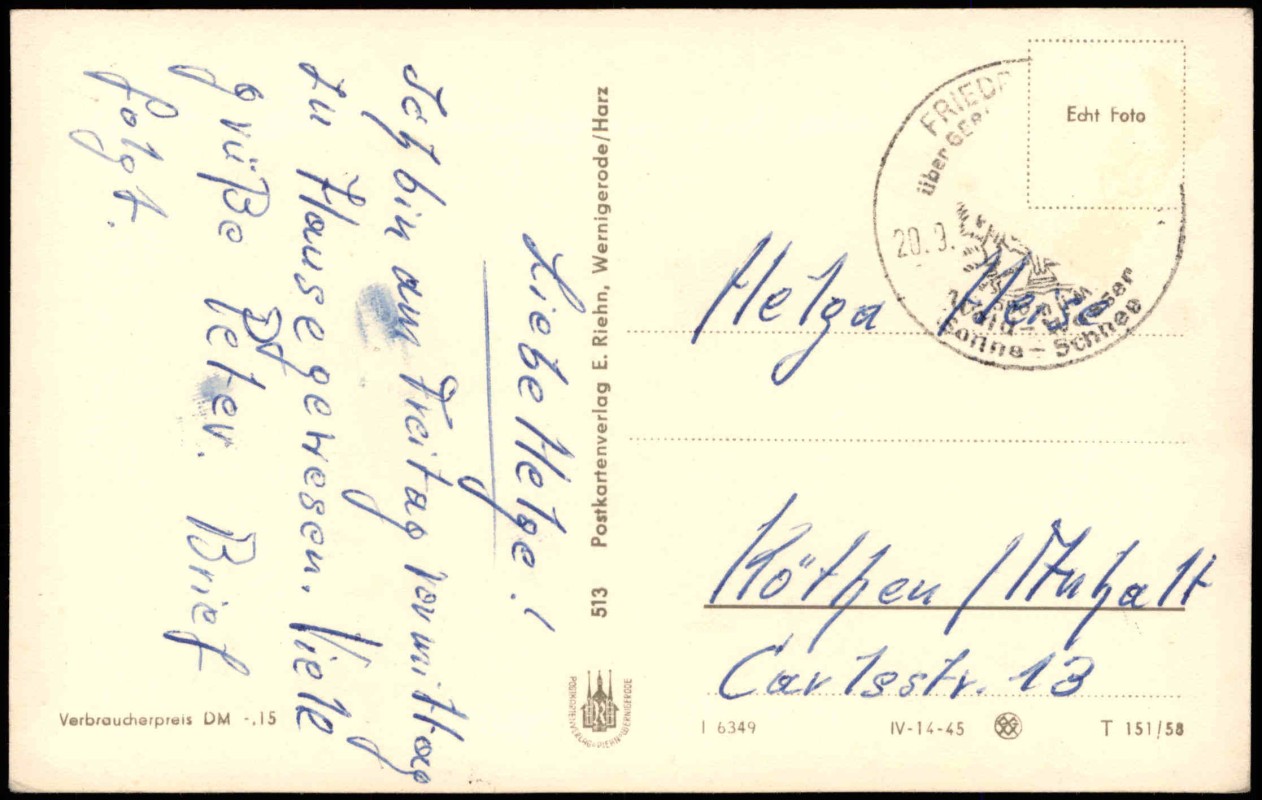 Liebe Helga!
Ich bin am Freitag vormittag
zu Hause gewesen. Viele
grüße Peter. Brief
folgt.
513 Postkartenverlag E. Riehn, Wernigerode/Harz
POSTKARTENVERLAG RIEHN WERNIGERODE
Verbraucherpreis DM -,15
Echt Foto
FRIEDR
über GER.
20. 9.
Wald - Wasser
Sonne - Schnee
Helga
Köthen / Anhalt
Carlsstr. 13
I 6349 IV-14-45 T 151/58